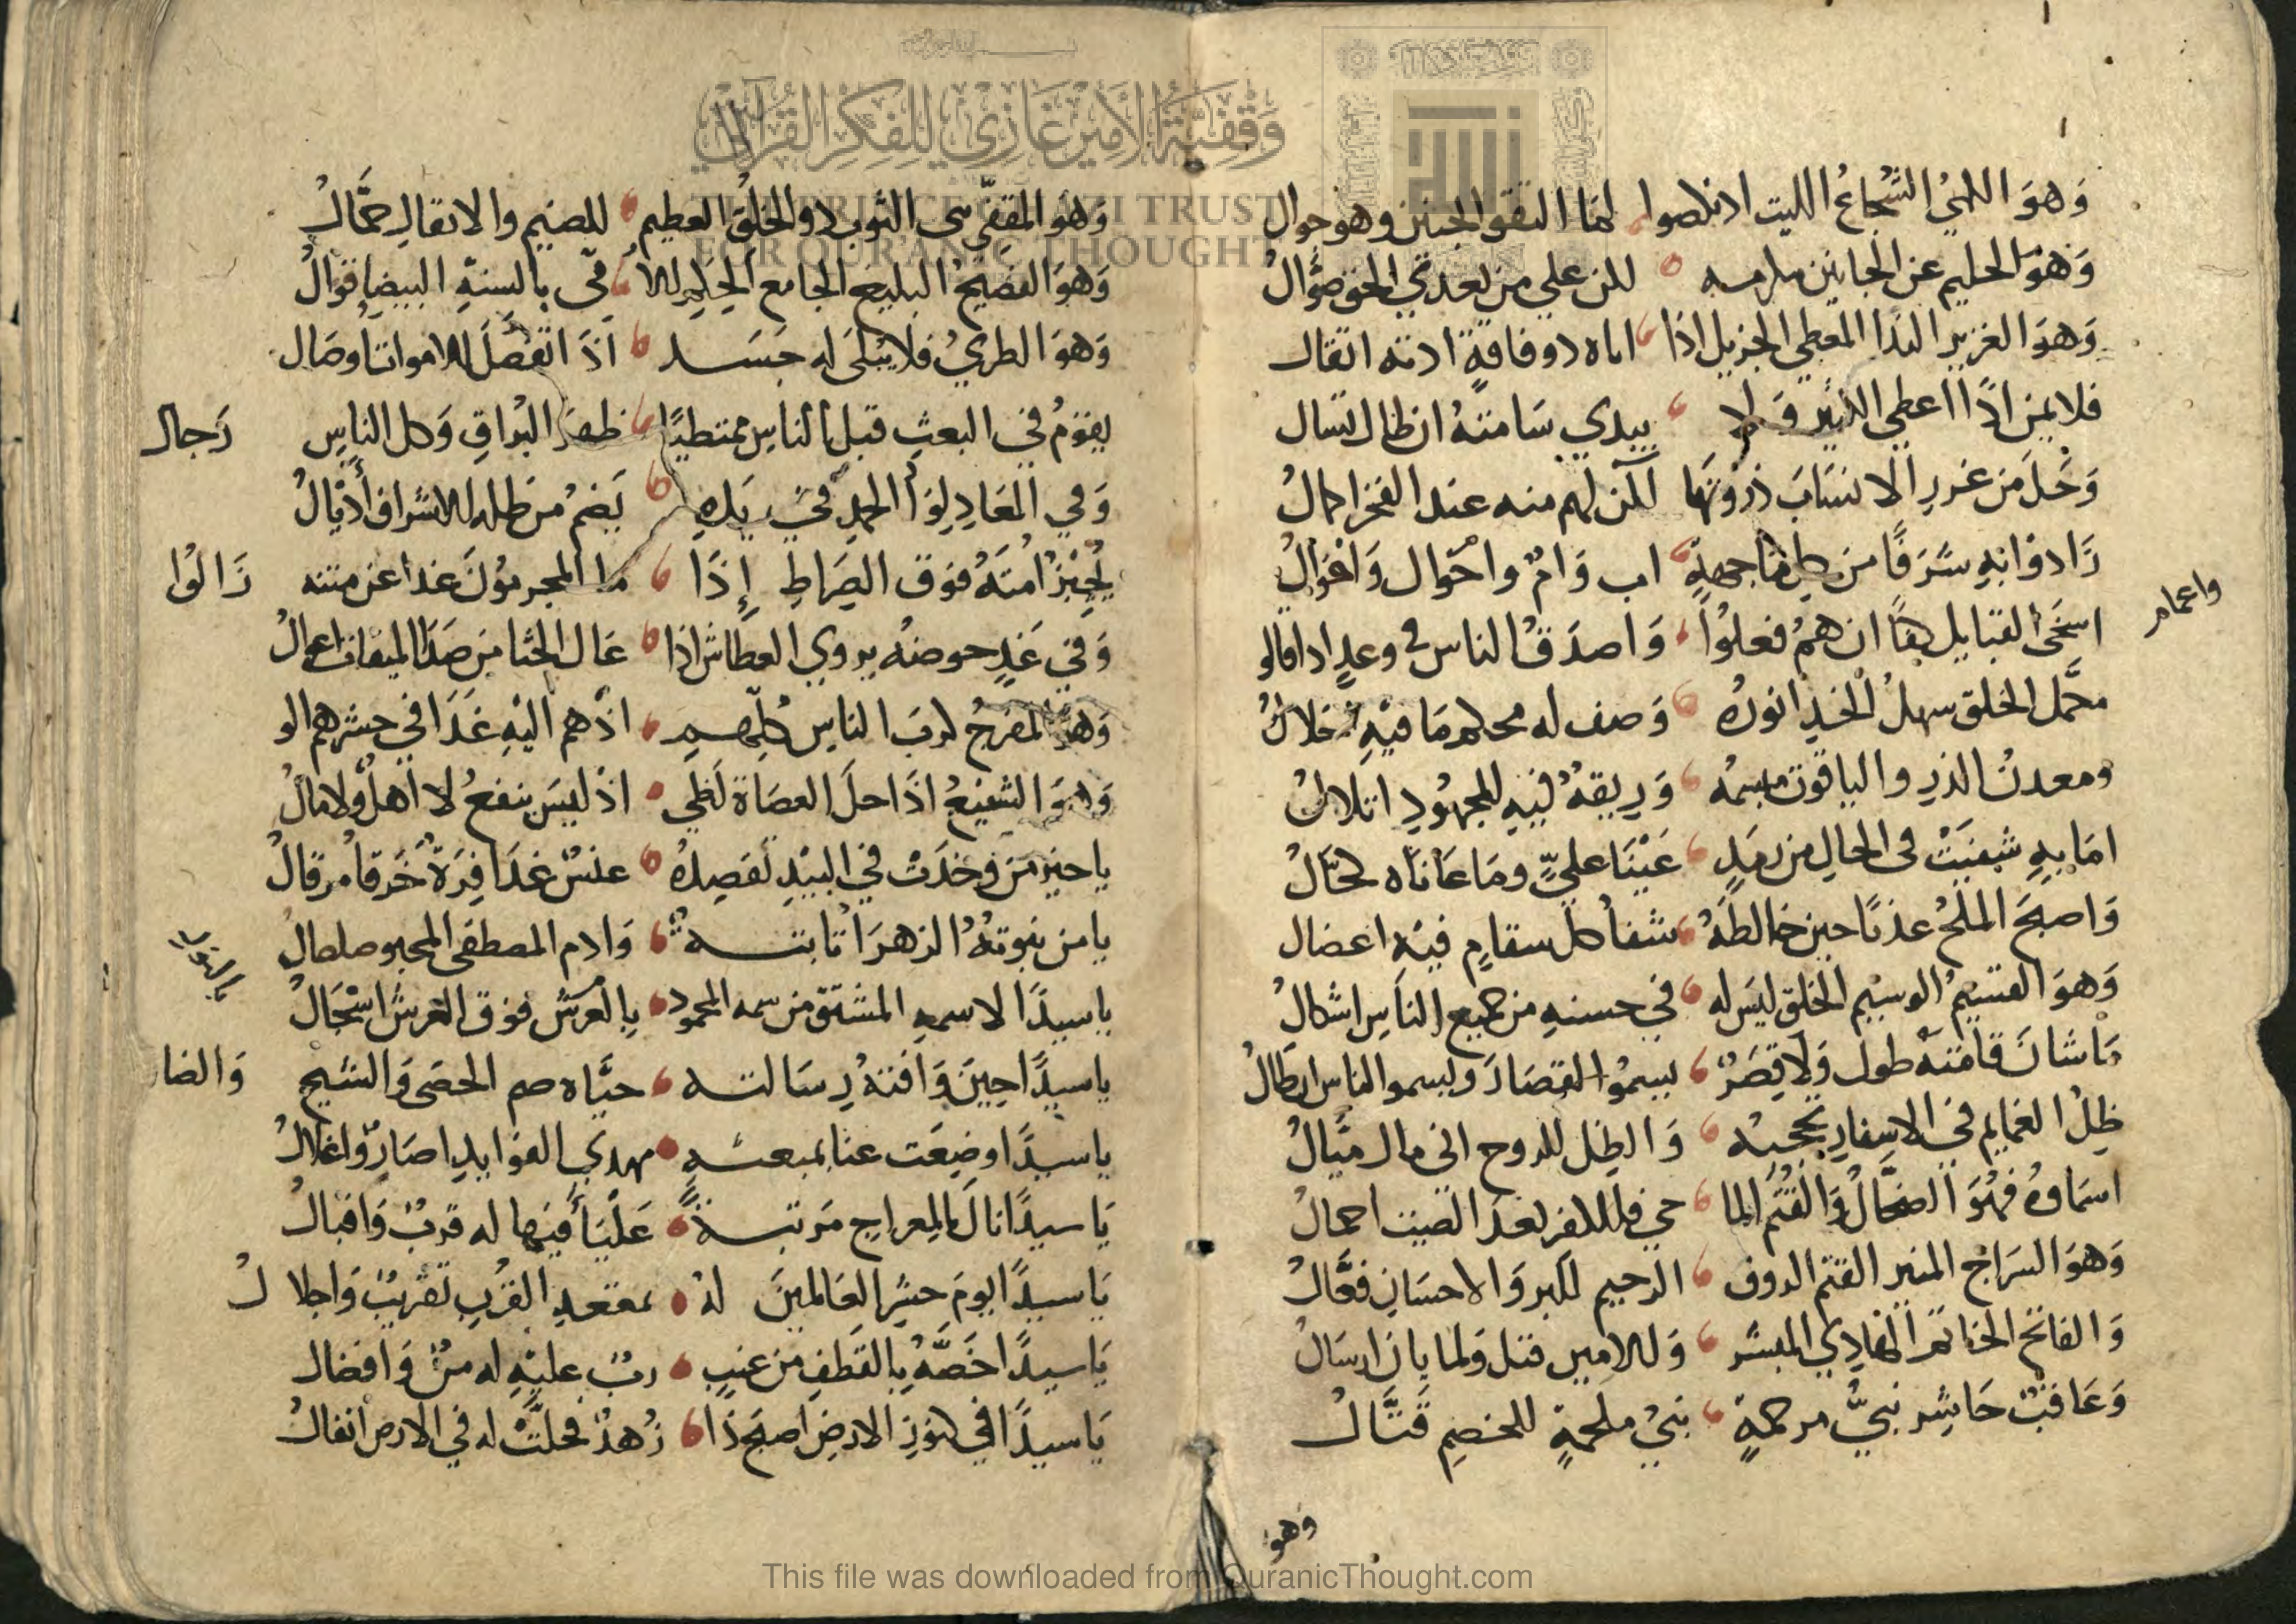 وَهوَ اللهيُ الشُجاعُ الليث اذ نكصوا لمَا التقو الجنين وهو جوال
وَهوَ الحليم عن الجانين مكرمه لكن علي من تعدي الحق صوَّالُ
وَهوَ الغزير الندَا المعطي الجزيل اذا اتاه ذو فاقةٍ ادته اثقال
فلا يمن اذَا اعطي الكثير وَلا يبدي سَامتهُ ان ظال تسال
وَحَلَ مَن غرر الانسَابَ ذروتهَا لكن لهم منه عند الفخر اكمالُ
زَادوْا بهِ شَرَفًا من كل مَا جههٍ اب وَامٌ واخوال وَاخوَالُ
واعمام
اسخَى القبايل كفًا ان همُ فعلوُا وَاصدَقُ الناس في وعدٍ اذا قالو
محمَّل الخلق سهلُ الخدِ انورُه وَصف له محكم مَا فيْهِ خلالُ
ومعدنُ الدرِ والياقوت مبسمه وَريقهُ فيهِ للمجهُودِ ابلالُ
امَا بهِ شُفيَتْ في الحالِ من رمَدٍ عَيْنَا عليٍّ ومَا عَانَاه كحَّالُ
وَاصبحَ الملحُ عذبًا حين خالطَهُ شفا كل سقامٍ فيْهِ اعضال
وَهوَ القسيمُ الوسيْم الخلق ليسَ له في حسنهِ من جميع الناسِ اشكالُ
مَا شانَ قامَتهُ طول وَلَا قِصَرٌ يسموُا القصَارَ ويسموا الناس ان طالُ
ظِلُ الغمايم في الاسفارِ تحجبُه وَالظِل للدوح اني مال ميَّالُ
اسمَاوهُ فهْوَ الضحَّاكُ وَالقُثَمُ الما حي فللكفر بعدَ الصيت اخمالُ
وَهوَ السرَاج المنير القثم الروف الرحيم للبر وَالاحسَانِ فعَّالُ
وَالفاتح الخاتم الهَادِي المبشر وَللامين قبل وَلما بانَ ارسَالُ
وَعَاقبٌ حَاشِر نبيُّ مرحمةٍ نبيُ ملحمةٍ للخصمِ قتَّالُ
وَهوَ
وَهوَ المقفّي التوب ذو الخلُق العظيم للضيم والاثقالِ حمَّالُ
وَهوَ الفصيحُ البليغ الجامع الحكم الامّي بالسنةِ البيضاِ قوَالُ
وَهوَ الطريُ فلا يبْلَى له جَسَد اذَ اتفَصَلَ للاموات اوصَال
يقوَمُ في البعثِ قبل الناسِ ممتطيًا ظهرَ البرَاقِ وَكل الناسِ رَجال
وَفي المعَادِ لِوَا الحمدِ في يَدِهِ يَضمُ من ظله للاشراف أذيالُ
يُجيْزُ امتَهُ فوق الصِرَاطِ إِذَا ما المجرموُنَ غدا عن متنه زَالُوا
وَفي غَدٍ حوضهُ يروي العطاش اذا عَال الحشا من صَدَا الميقات اعوالُ
وَهوَ المفرجُ كربَ الناسِ كلِهمِ اذْهم اليْهِ غَدَا في حشرهم الو
وَهوَ الشفيعُ اذَا حلَ العصَاة لَظي اذ ليسَ ينفعُ لا اهلُ ولا مَالُ
يا خيرَ من وخدَتْ في البيدِ تقصِدُهُ عنسٌ غدَافِرَة خَرقا مرقالُ
يا من نبوتهُ الزهرَا ثابتة وَادم المصطفى المحبو صلصال
يا سيدًا لاسمهِ المشتق من سمه المحمود بالعرش فوق العرش اسْجَالُ
يا سيدًا حِينَ وَافتهُ رِسَالته حيَّاه صم الحصَى وَالشيح وَالضا
يا سيدًا وضِعَت عنا بمبعثهِ مهدي الفوايدِ اصَارٌ واغلالُ
يَا سيدًا نالَ بالمِعراجِ مَرتبةً عَليَا فيَها له قربٌ وَاقبالُ
يَا سيدًا يومَ حشرِ العَالمينَ لهُ بمقعدِ القربِ تقريبٌ وَاجلالُ
يَا سيدًا خصَّهُ بالقطفِ من عنبٍ ربٌ عليْهِ له منٌ وَافضال
يَا سيدًا في كنوزِ الارضِ اصبحَ ذَا زُهدٌ فحلتْ له في الارض انفالُ
وَقْفِيَّةُ الأَمِيْر غَازِيْ لِلْفِكْرِ القُرْآنِيّ
THE PRINCE GHAZI TRUST
FOR QUR'ANIC THOUGHT
This file was downloaded from QuranicThought.com